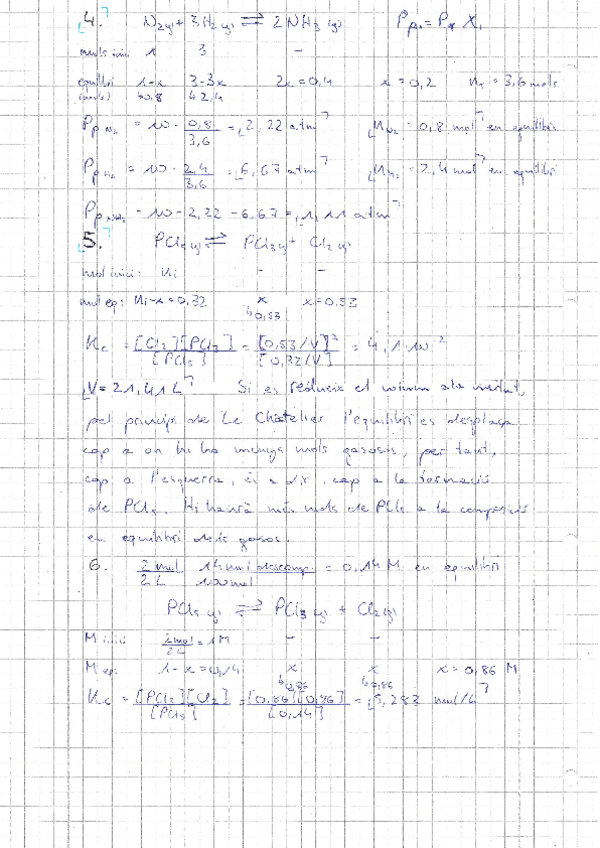 4. N₂(g) + 3H₂(g) ⇌ 2NH₃(g) Pp₁ = P_T X₁
mols inici 1 3 -
equilibri 1-x 3-3x 2x=0,4 x=0,2 n_T=3,6 mols
(mols) ↳0,8 ↳2,4
Pp N₂ = 10 · 0,8/3,6 = 2,22 atm n N₂ = 0,8 mol en equilibri
Pp H₂ = 10 · 2,4/3,6 = 6,67 atm n H₂ = 2,4 mol en equilibri
Pp NH₃ = 10 - 2,22 - 6,67 = 1,11 atm
5. PCl₅(g) ⇌ PCl₃(g) + Cl₂(g)
mol inici: ni - -
mol eq: ni-x=0,32 x x=0,53
↳0,53
Kc = [Cl₂][PCl₃]/[PCl₅] = [0,53/V]²/[0,32/V] = 4,1·10⁻²
V = 21,41 L Si es redueix el volum a la meitat,
pel principi de Le Chatelier l'equilibri es desplaça
cap a on hi ha menys mols gasosos, per tant,
cap a l'esquerra, és a dir, cap a la formació
de PCl₅. Hi haurà més mols de PCl₅ a la composició
en equilibri dels gasos.
6. 2 mol/2 L 14 mol descomp./100 mol = 0,14 M en equilibri
PCl₅(g) ⇌ PCl₃(g) + Cl₂(g)
M inici 2mol/2L = 1M - -
M eq: 1-x=0,14 x x x=0,86 M
↳0,86 ↳0,86
Kc = [PCl₃][Cl₂]/[PCl₅] = [0,86][0,86]/[0,14] = 5,283 mol/L